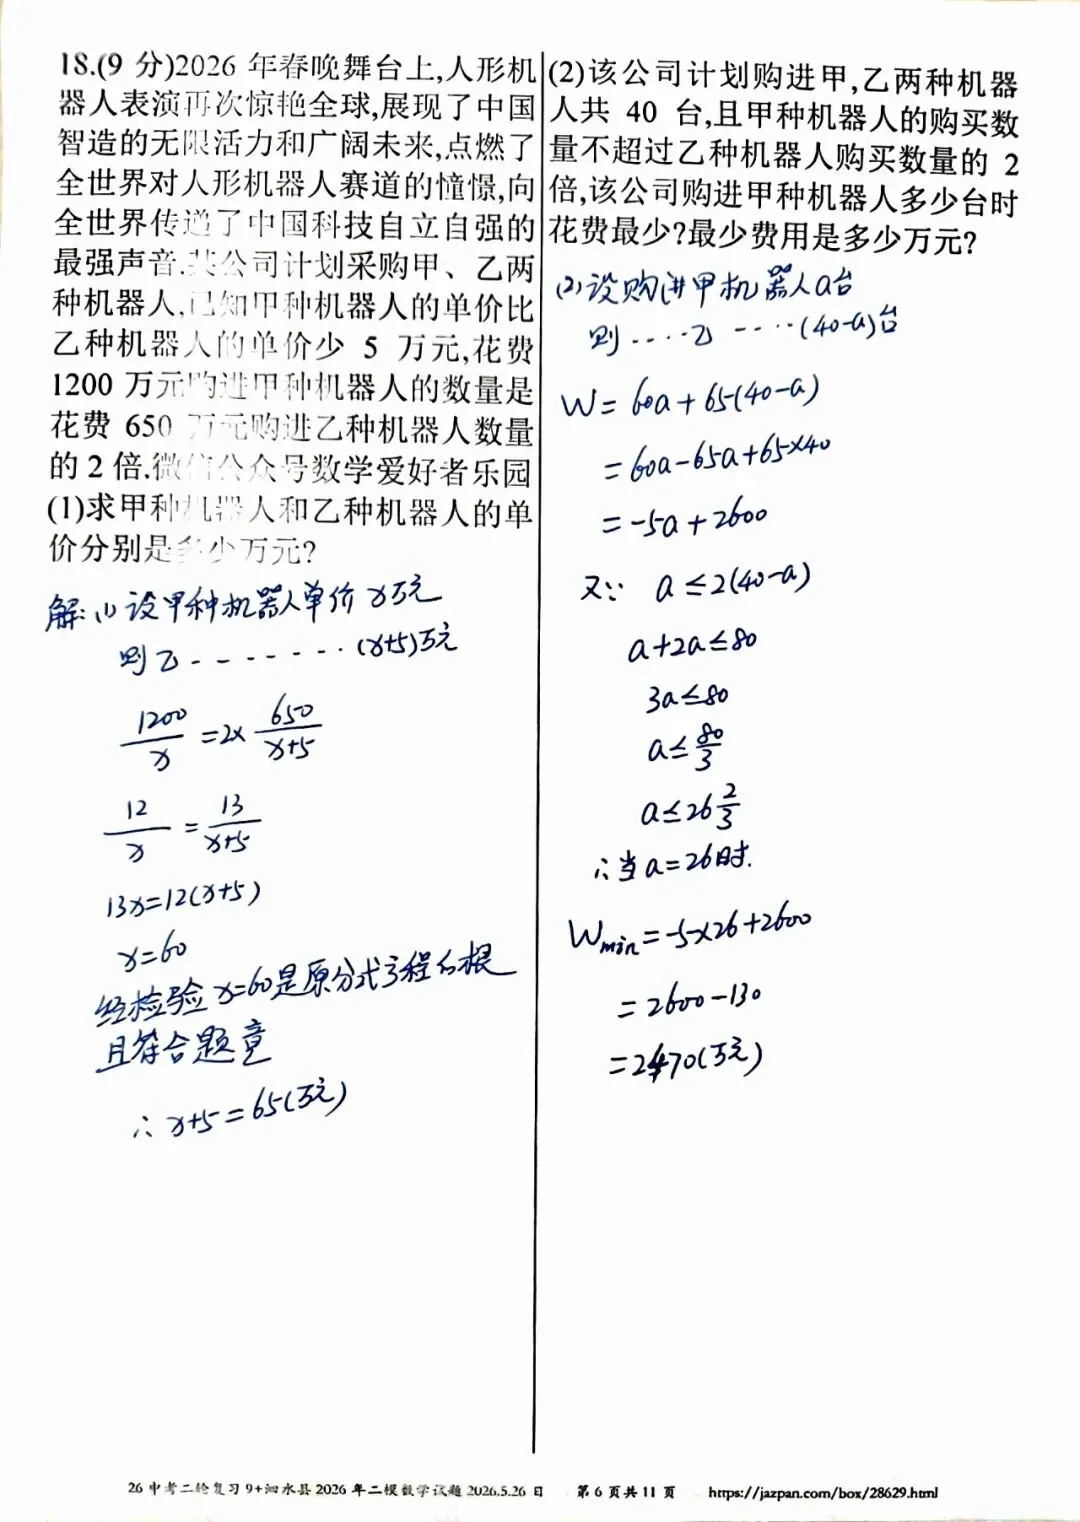 18.(9 分)2026 年春晚舞台上,人形机
器人表演再次惊艳全球,展现了中国
智造的无限活力和广阔未来,点燃了
全世界对人形机器人赛道的憧憬,向
全世界传递了中国科技自立自强的
最强声音.某公司计划采购甲、乙两
种机器人,已知甲种机器人的单价比
乙种机器人的单价少 5 万元,花费
1200 万元购进甲种机器人的数量是
花费 650 万元购进乙种机器人数量
的 2 倍.微信公众号数学爱好者乐园
(1)求甲种机器人和乙种机器人的单
价分别是多少万元?
解:(1)设甲种机器人单价x万元
则乙--------(x+5)万元
1200/x=2×650/(x+5)
12/x=13/(x+5)
13x=12(x+5)
x=60
经检验x=60是原分式方程的根
且符合题意
∴x+5=65(万元)
(2)该公司计划购进甲,乙两种机器
人共 40 台,且甲种机器人的购买数
量不超过乙种机器人购买数量的 2
倍,该公司购进甲种机器人多少台时
花费最少?最少费用是多少万元?
(2)设购进甲机器人a台
则....乙....(40-a)台
W=60a+65(40-a)
=60a-65a+65×40
=-5a+2600
又∵ a≤2(40-a)
a+2a≤80
3a≤80
a≤80/3
a≤26 2/3
∴当a=26时.
Wmin=-5×26+2600
=2600-130
=2470(万元)
26 中考二轮复习 9+泗水县 2026 年二模数学试题 2026.5.26 日 第 6 页共 11 页 https://jazpan.com/box/28629.html